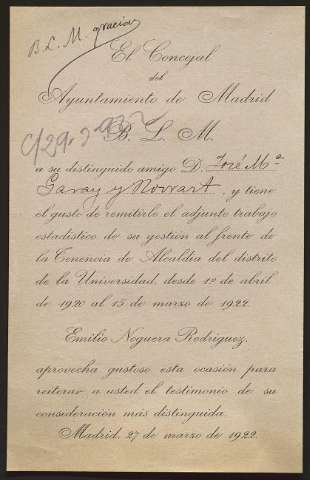 B. L. M. gracias
El Concejal
del
Ayuntamiento de Madrid
B. L. M.
C/29-3-922
a su distinguido amigo D. José Mª
Garay y Rowart, y tiene
el gusto de remitirle el adjunto trabajo
estadístico de su gestión al frente de
la Tenencia de Alcaldía del distrito
de la Universidad, desde 1º de abril
de 1920 al 15 de marzo de 1922.
Emilio Noguera Rodríguez,
aprovecha gustoso esta ocasión para
reiterar a usted el testimonio de su
consideración más distinguida.
Madrid, 27 de marzo de 1922.